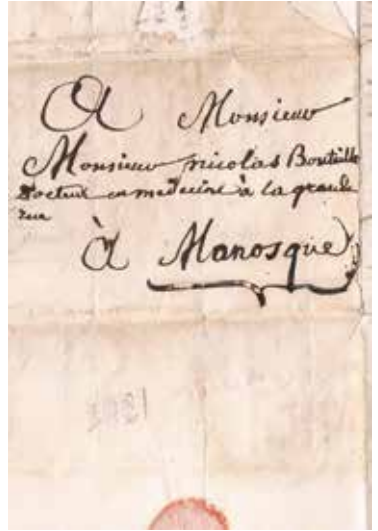 A Monsieur
Monsieur nicolas Bouteille
docteur en medecine à la grande
rue
à Manosque